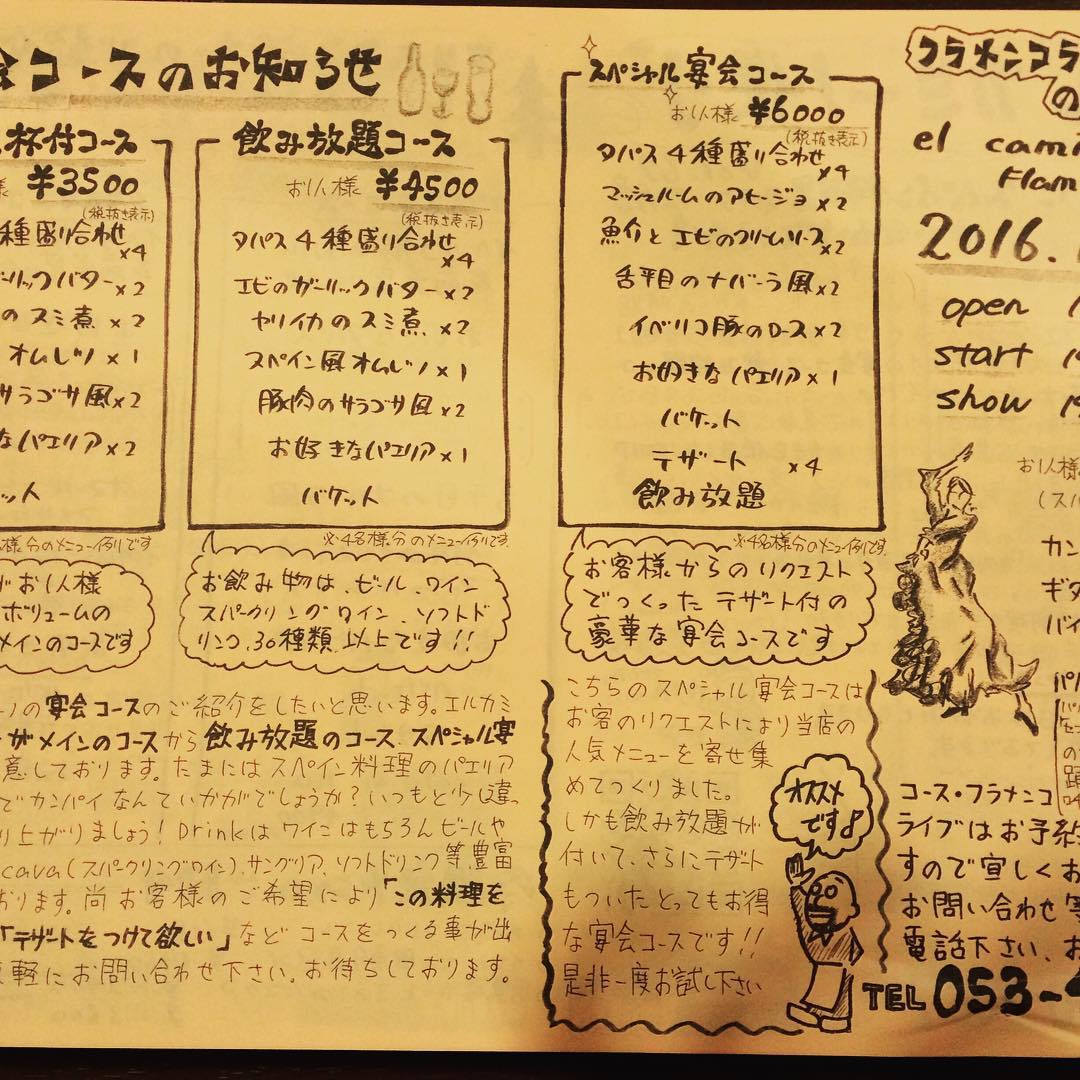 会コースのお知らせ
杯付コース
様 ¥3500
(税抜き表示)
種盛り合わせ
×4
ーリックバター×2
のスミ煮 ×2
オムレツ ×1
サラゴサ風×2
なパエリア×2
ット
様分のメニュー例りです
お1人様
ボリュームの
メインのコースです
飲み放題コース
お1人様 ¥4500
(税抜き表示)
タパス4種盛り合わせ
×4
エビのガーリックバター×2
ヤリイカのスミ煮 ×2
スペイン風オムレツ×1
豚肉のサラゴサ風×2
お好きなパエリア×1
バケット
※4名様分のメニュー例りです
お飲み物は、ビール、ワイン
スパークリングワイン、ソフトド
リンク、30種類以上です!!
ノの宴会コースのご紹介をしたいと思います。エルカミ
がメインのコースから飲み放題のコース、スペシャル宴
意しております。たまにはスペイン料理のパエリア
でカンパイなんていかがでしょうか?いつもと少し違っ
り上がりましょう! Drinkはワインはもちろんビールや
cava(スパークリングワイン)、サングリア、ソフトドリンク等豊富
おります。尚お客様のご希望により「この料理を
「デザートをつけて欲しい」などコースをつくる事が出
軽にお問い合わせ下さい。お待ちしております。
スペシャル宴会コース
お1人様 ¥6000
(税抜き表示)
タパス4種盛り合わせ
×4
マッシュルームのアヒージョ×2
魚介とエビのクリームソース×2
舌平目のナバーラ風×2
イベリコ豚のロース×2
お好きなパエリア×1
バケット
デザート ×4
飲み放題
※4名様分のメニュー例りです
お客様からのリクエスト
でつくったデザート付の
豪華な宴会コースです
こちらのスペシャル宴会コースは
お客のリクエストにより当店の
人気メニューを寄せ集
めてつくりました。
しかも飲み放題が
付いて、さらにデザート
もついたとってもお得
な宴会コースです!!
是非一度お試し下さい
オススメ
です♪
フラメンコラ
の
el cami
Flam
2016.
open 1
start 19
show 19
お1人様
(スパ
カン
ギタ
バイ
パル
の
コース・フラメンコ
ライブはお予約
すので宜しくお
お問い合わせ等
電話下さい、お
TEL 053-4